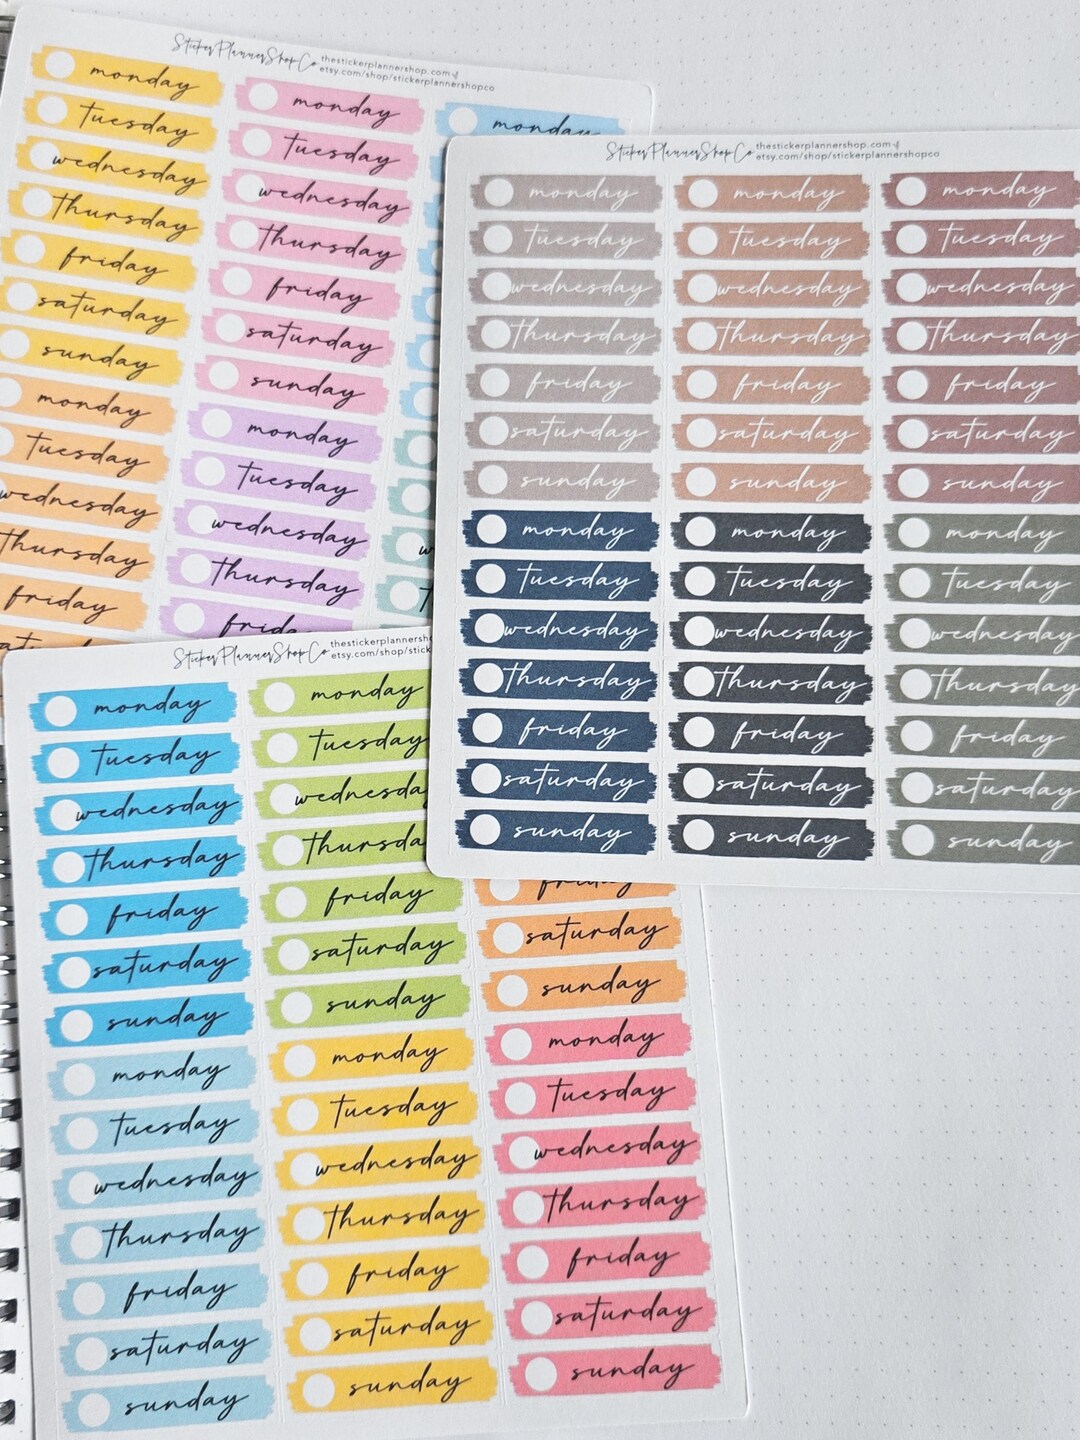 StickerPlannerShopCo thestickerplannershop.com
etsy.com/shop/stickerplannershopco
monday
tuesday
wednesday
thursday
friday
saturday
sunday
monday
tuesday
wednesday
thursday
friday
monday
tuesday
wednesday
thursday
friday
saturday
sunday
monday
tuesday
wednesday
thursday
friday
monday
StickerPlannerShopCo thestickerplannershop.com
etsy.com/shop/stickerplannershopco
monday
tuesday
wednesday
thursday
friday
saturday
sunday
monday
tuesday
wednesday
thursday
friday
saturday
sunday
monday
tuesday
wednesday
thursday
friday
saturday
sunday
monday
tuesday
wednesday
thursday
friday
saturday
sunday
monday
tuesday
wednesday
thursday
friday
saturday
sunday
monday
tuesday
wednesday
thursday
friday
saturday
sunday
StickerPlannerShopCo thestickerplannersh
etsy.com/shop/stick
monday
tuesday
wednesday
thursday
friday
saturday
sunday
monday
tuesday
wednesday
thursday
friday
saturday
sunday
monday
tuesday
wednesday
thursda
friday
saturday
sunday
monday
tuesday
wednesday
thursday
friday
saturday
sunday
friday
saturday
sunday
monday
tuesday
wednesday
thursday
friday
saturday
sunday